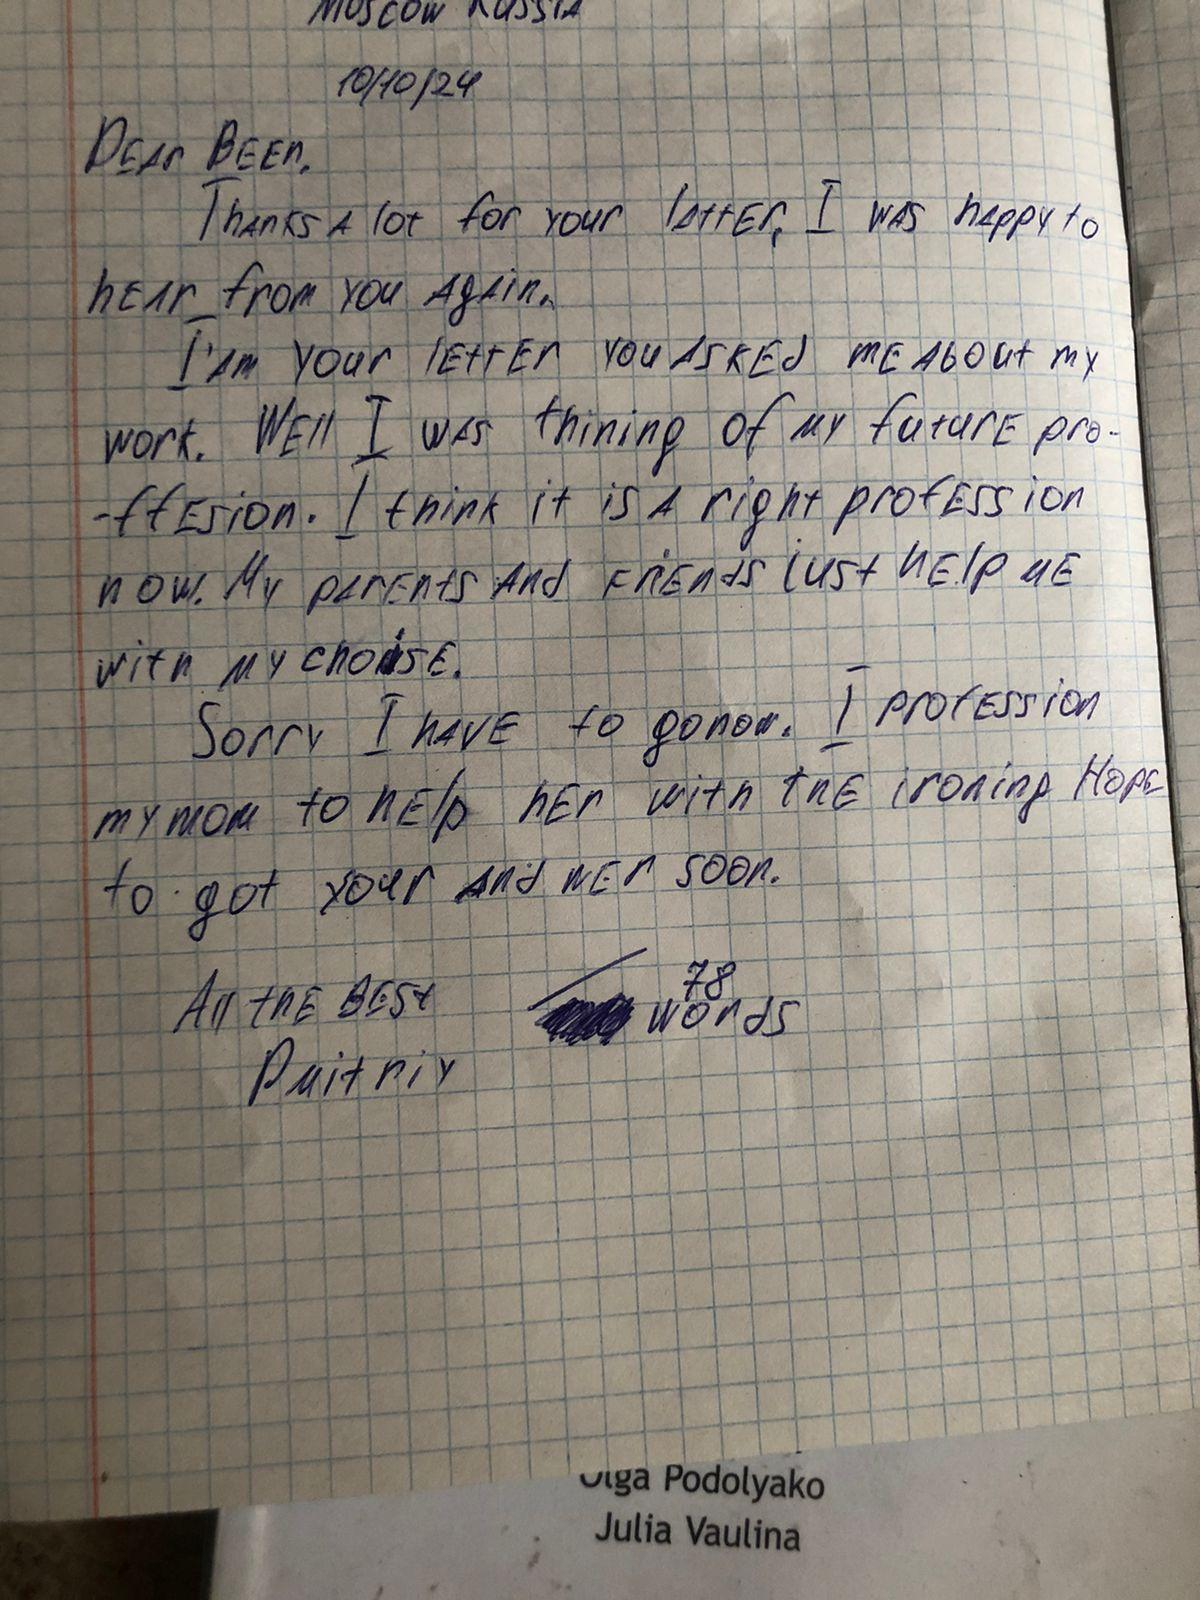 Moscow Russia
10/10/24
Dear Been.
Thanks a lot for your latter, I was happy to
hear from you again.
I'am your letter you asked me about my
work. Well I was thining of my future pro-
-ffesion. I think it is a right profession
now. My parents and friends just help me
with my choise.
Sorry I have to gonow. I profession
my mom to help her with the ironing Hope
to got your and wer soon.
All the Best
78
words
Dmitriy
Olga Podolyako
Julia Vaulina